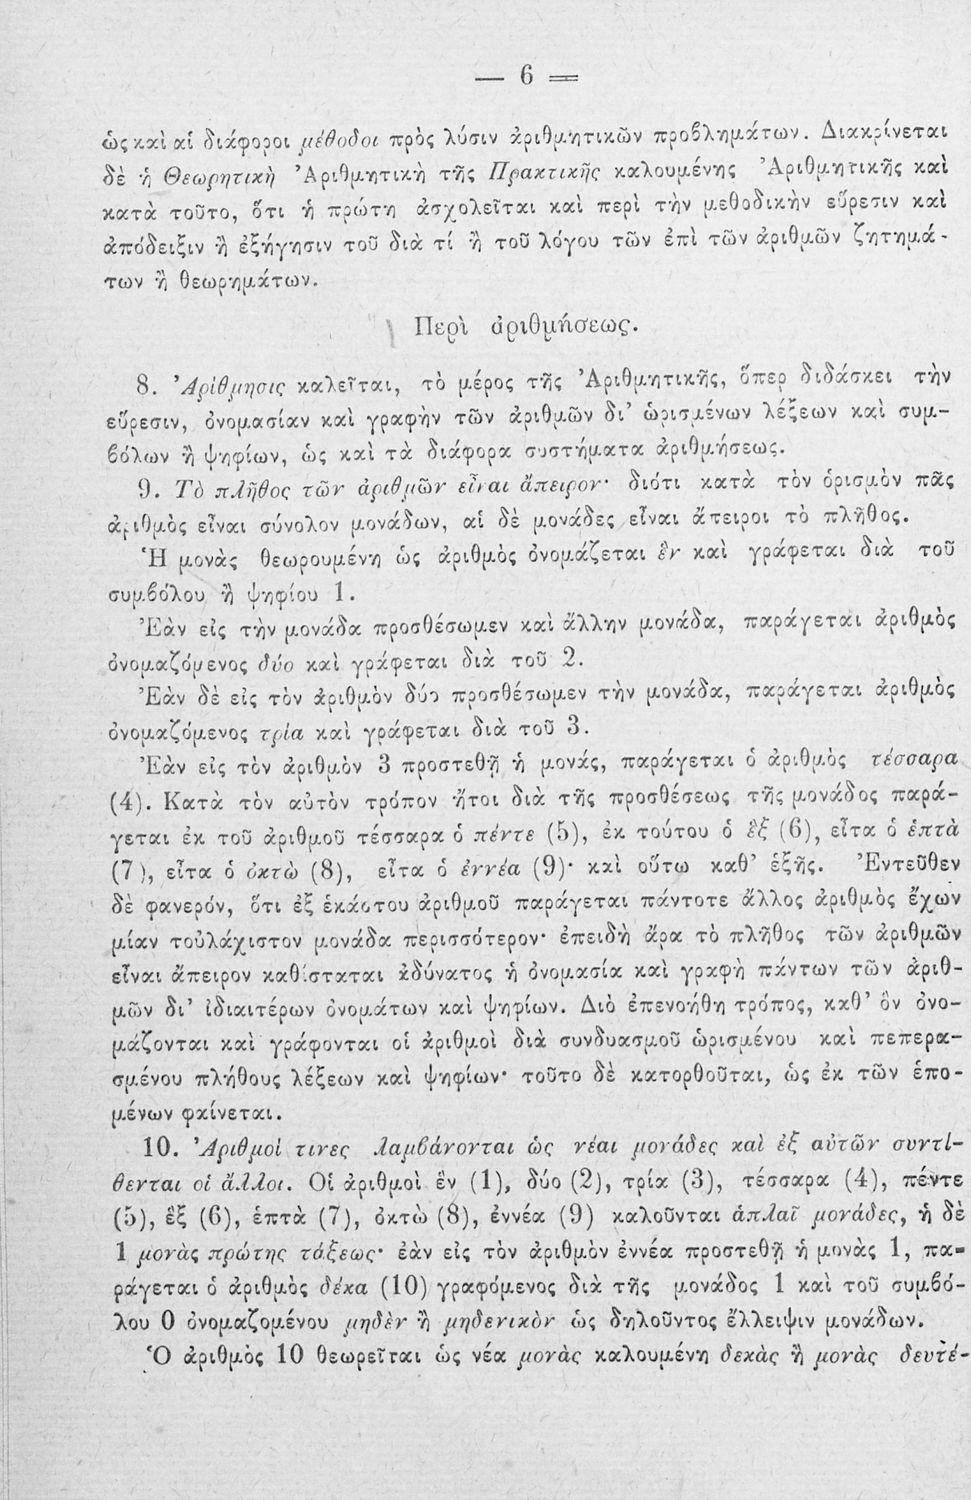 — 6 —
ὡς καὶ αἱ διάφοροι μέθοδοι πρὸς λύσιν ἀριθμητικῶν προβλημάτων. Διακρίνεται
δὲ ἡ Θεωρητικὴ Ἀριθμητικὴ τῆς Πρακτικῆς καλουμένης Ἀριθμητικῆς καὶ
κατὰ τοῦτο, ὅτι ἡ πρώτη ἀσχολεῖται καὶ περὶ τὴν μεθοδικὴν εὕρεσιν καὶ
ἀπόδειξιν ἢ ἐξήγησιν τοῦ διὰ τί ἢ τοῦ λόγου τῶν ἐπὶ τῶν ἀριθμῶν ζητημά-
των ἢ θεωρημάτων.
Περὶ ἀριθμήσεως.
8. Ἀρίθμησις καλεῖται, τὸ μέρος τῆς Ἀριθμητικῆς, ὅπερ διδάσκει τὴν
εὕρεσιν, ὀνομασίαν καὶ γραφὴν τῶν ἀριθμῶν δι' ὡρισμένων λέξεων καὶ συμ-
βόλων ἢ ψηφίων, ὡς καὶ τὰ διάφορα συστήματα ἀριθμήσεως.
9. Τὸ πλῆθος τῶν ἀριθμῶν εἶναι ἄπειρον· διότι κατὰ τὸν ὁρισμὸν πᾶς
ἀριθμὸς εἶναι σύνολον μονάδων, αἱ δὲ μονάδες εἶναι ἄπειροι τὸ πλῆθος.
Ἡ μονὰς θεωρουμένη ὡς ἀριθμὸς ὀνομάζεται ἓν καὶ γράφεται διὰ τοῦ
συμβόλου ἢ ψηφίου 1.
Ἐὰν εἰς τὴν μονάδα προσθέσωμεν καὶ ἄλλην μονάδα, παράγεται ἀριθμὸς
ὀνομαζόμενος δύο καὶ γράφεται διὰ τοῦ 2.
Ἐὰν δὲ εἰς τὸν ἀριθμὸν δύο προσθέσωμεν τὴν μονάδα, παράγεται ἀριθμὸς
ὀνομαζόμενος τρία καὶ γράφεται διὰ τοῦ 3.
Ἐὰν εἰς τὸν ἀριθμὸν 3 προστεθῇ ἡ μονάς, παράγεται ὁ ἀριθμὸς τέσσαρα
(4). Κατὰ τὸν αὐτὸν τρόπον ἤτοι διὰ τῆς προσθέσεως τῆς μονάδος παρά-
γεται ἐκ τοῦ ἀριθμοῦ τέσσαρα ὁ πέντε (5), ἐκ τούτου ὁ ἓξ (6), εἶτα ὁ ἑπτὰ
(7), εἶτα ὁ ὀκτὼ (8), εἶτα ὁ ἐννέα (9)· καὶ οὕτω καθ' ἑξῆς. Ἐντεῦθεν
δὲ φανερόν, ὅτι ἐξ ἑκάστου ἀριθμοῦ παράγεται πάντοτε ἄλλος ἀριθμὸς ἔχων
μίαν τοὐλάχιστον μονάδα περισσότερον· ἐπειδὴ ἄρα τὸ πλῆθος τῶν ἀριθμῶν
εἶναι ἄπειρον καθίσταται ἀδύνατος ἡ ὀνομασία καὶ γραφὴ πάντων τῶν ἀριθ-
μῶν δι' ἰδιαιτέρων ὀνομάτων καὶ ψηφίων. Διὸ ἐπενοήθη τρόπος, καθ' ὃν ὀνο-
μάζονται καὶ γράφονται οἱ ἀριθμοὶ διὰ συνδυασμοῦ ὡρισμένου καὶ πεπερα-
σμένου πλήθους λέξεων καὶ ψηφίων· τοῦτο δὲ κατορθοῦται, ὡς ἐκ τῶν ἑπο-
μένων φαίνεται.
10. Ἀριθμοί τινες λαμβάνονται ὡς νέαι μονάδες καὶ ἐξ αὐτῶν συντί-
θενται οἱ ἄλλοι. Οἱ ἀριθμοὶ ἓν (1), δύο (2), τρία (3), τέσσαρα (4), πέντε
(5), ἓξ (6), ἑπτὰ (7), ὀκτὼ (8), ἐννέα (9) καλοῦνται ἁπλαῖ μονάδες, ἡ δὲ
1 μονὰς πρώτης τάξεως· ἐὰν εἰς τὸν ἀριθμὸν ἐννέα προστεθῇ ἡ μονὰς 1, πα-
ράγεται ὁ ἀριθμὸς δέκα (10) γραφόμενος διὰ τῆς μονάδος 1 καὶ τοῦ συμβό-
λου 0 ὀνομαζομένου μηδὲν ἢ μηδενικὸν ὡς δηλοῦντος ἔλλειψιν μονάδων.
Ὁ ἀριθμὸς 10 θεωρεῖται ὡς νέα μονὰς καλουμένη δεκὰς ἢ μονὰς δευτέ-